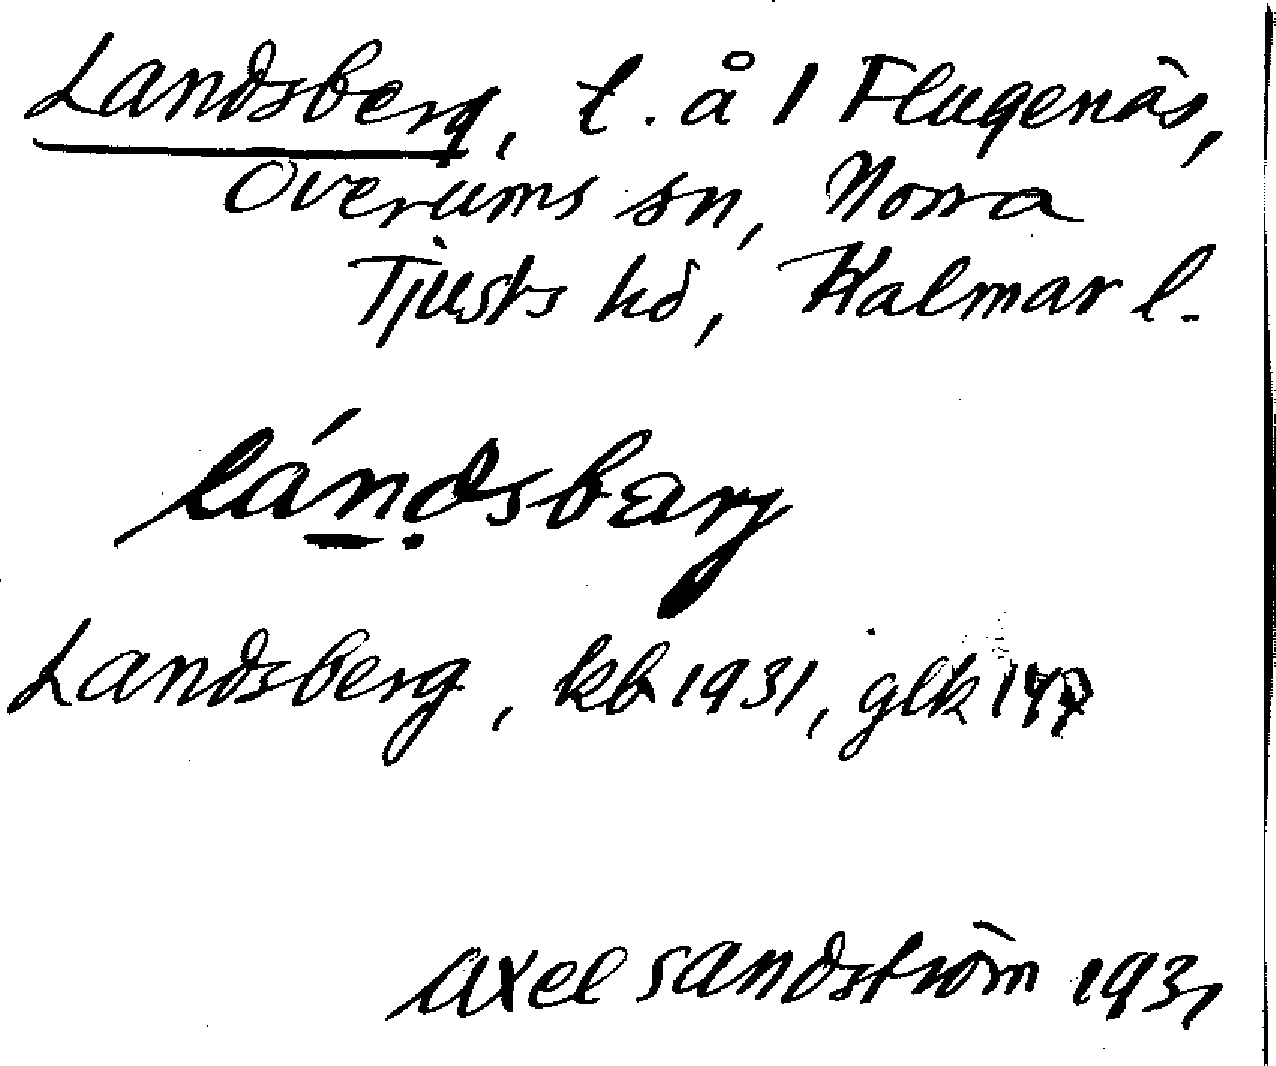 Landsberg, t. å 1 Flugenäs,
Överums sn, Norra
Tjusts hd, Kalmar l.
lándsbærj
Landsberg, kb 1931, glk
Axel Sandström 1931